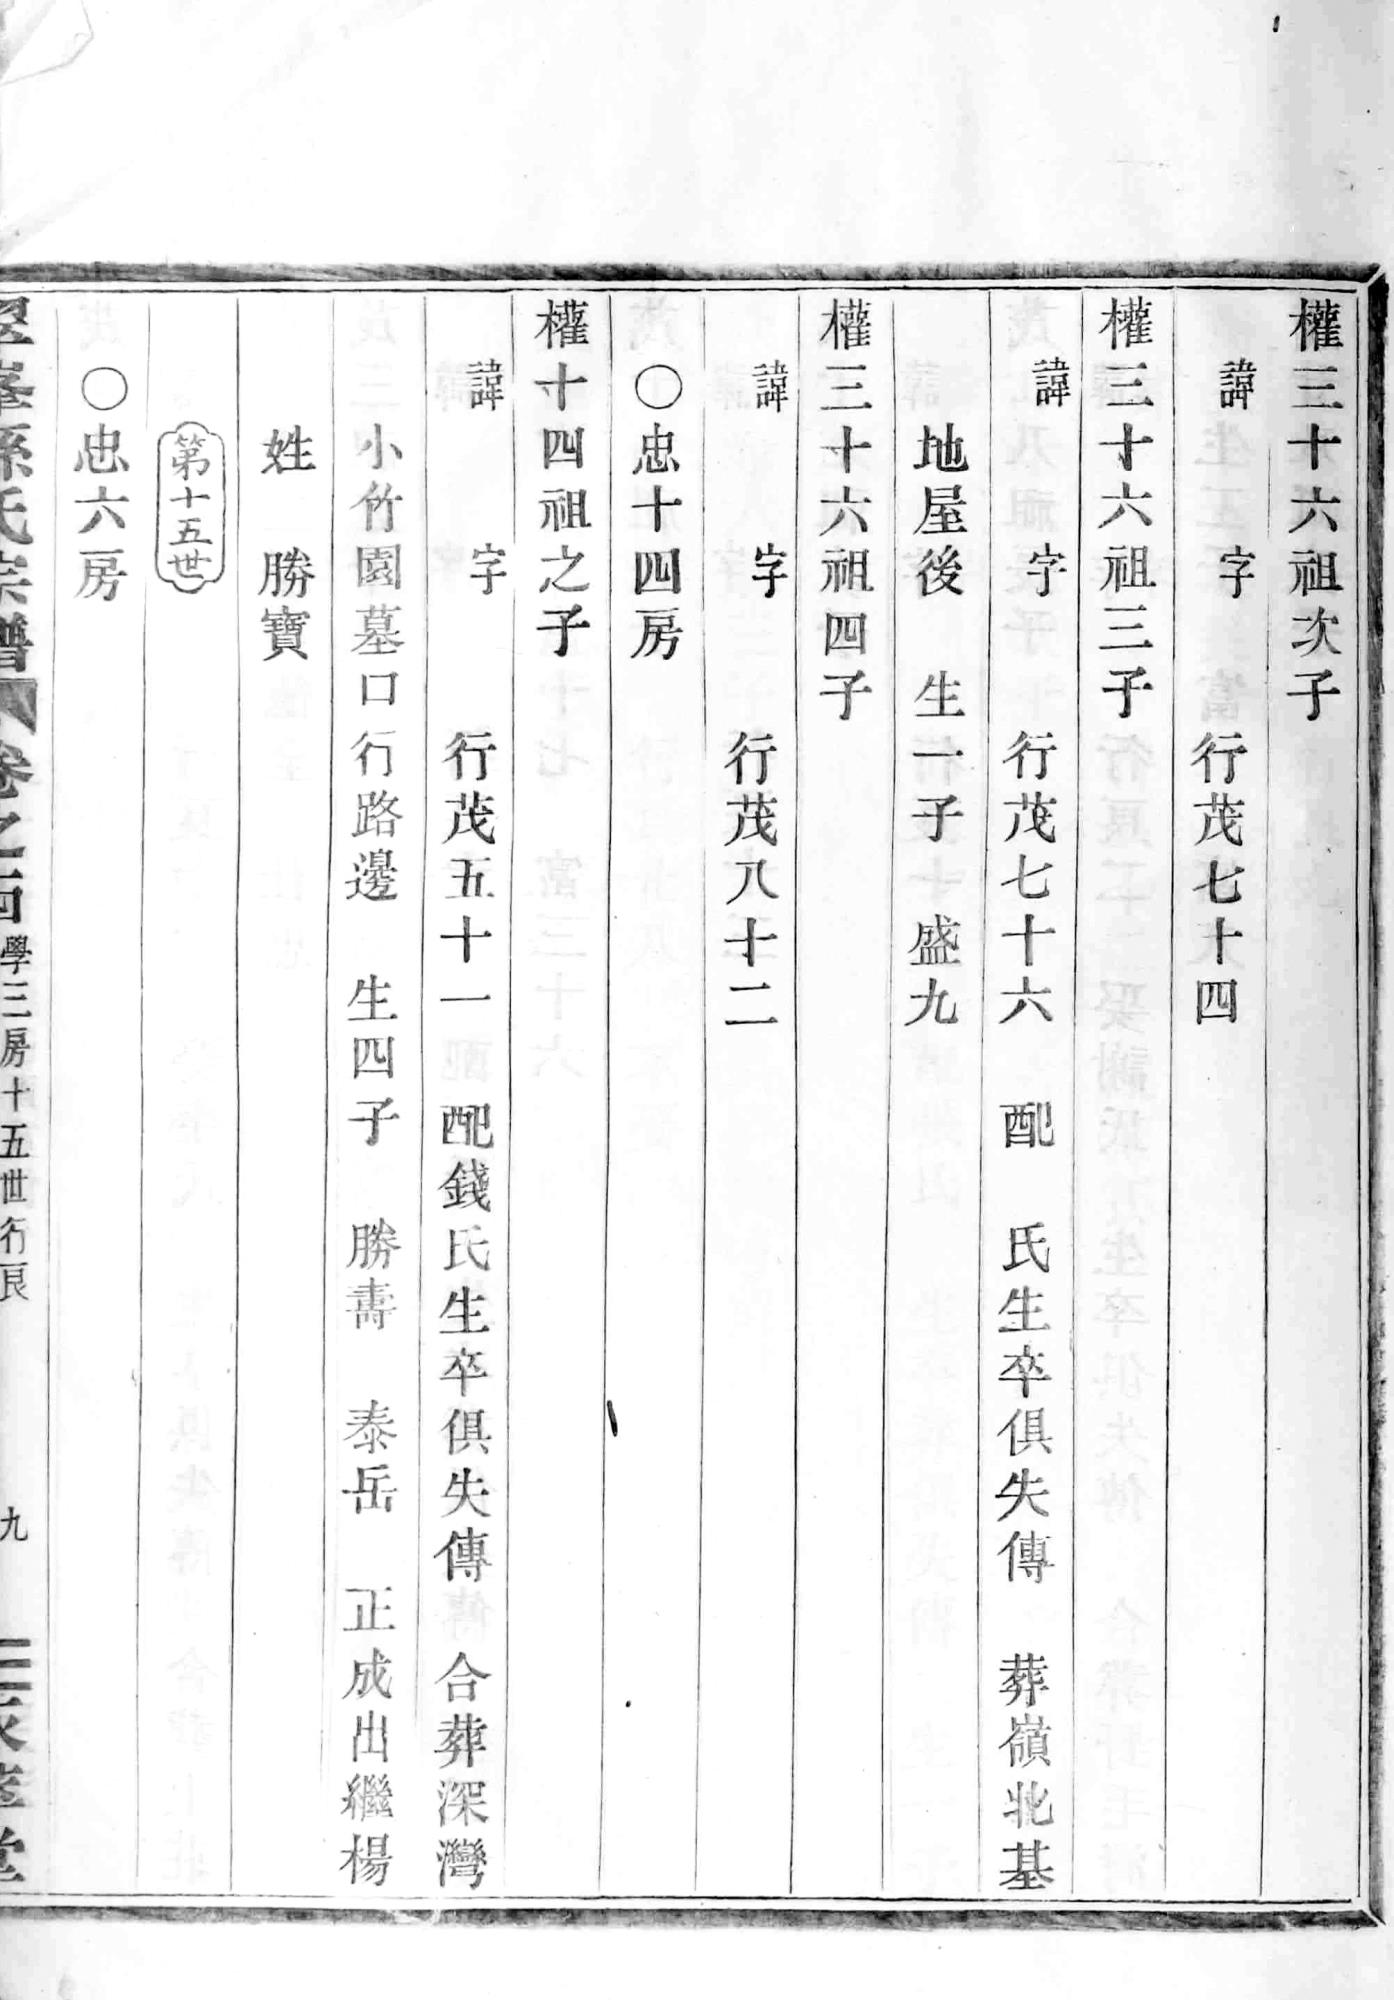 權三十六祖次子
諱 字 行茂七十四
權三十六祖三子
諱 字 行茂七十六 配 氏生卒俱失傳 葬嶺北基
地屋後 生一子 盛九
權三十六祖四子
諱 字 行茂八十二
〇忠十四房
權十四祖之子
諱 字 行茂五十一 配錢氏生卒俱失傳 合葬深灣
小竹園墓口行路邊 生四子 勝壽 泰岳 正成出繼楊
姓 勝寶
第十五世
〇忠六房
孫氏宗譜 卷之四 學三房十五世行良 九 堂